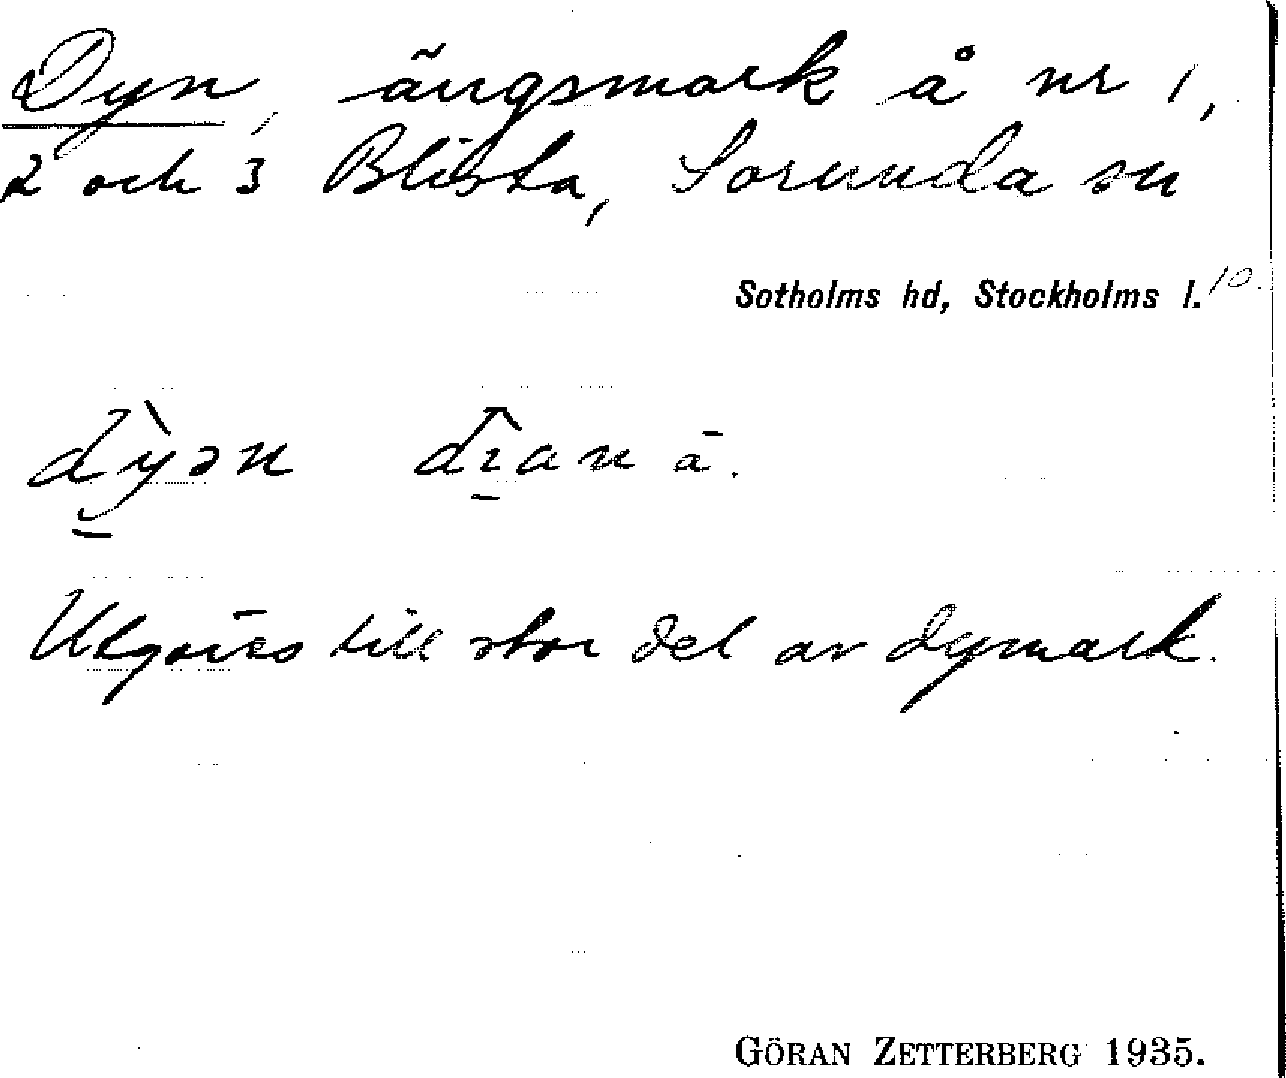 Dyn, ängsmark å nr 1,
2 och 3 Blista, Sorunda sn
Sotholms hd, Stockholms l. 10.
dỳ̠ən dı̠an ā.
Utgöres till stor del av dymark.
GÖRAN ZETTERBERG 1935.